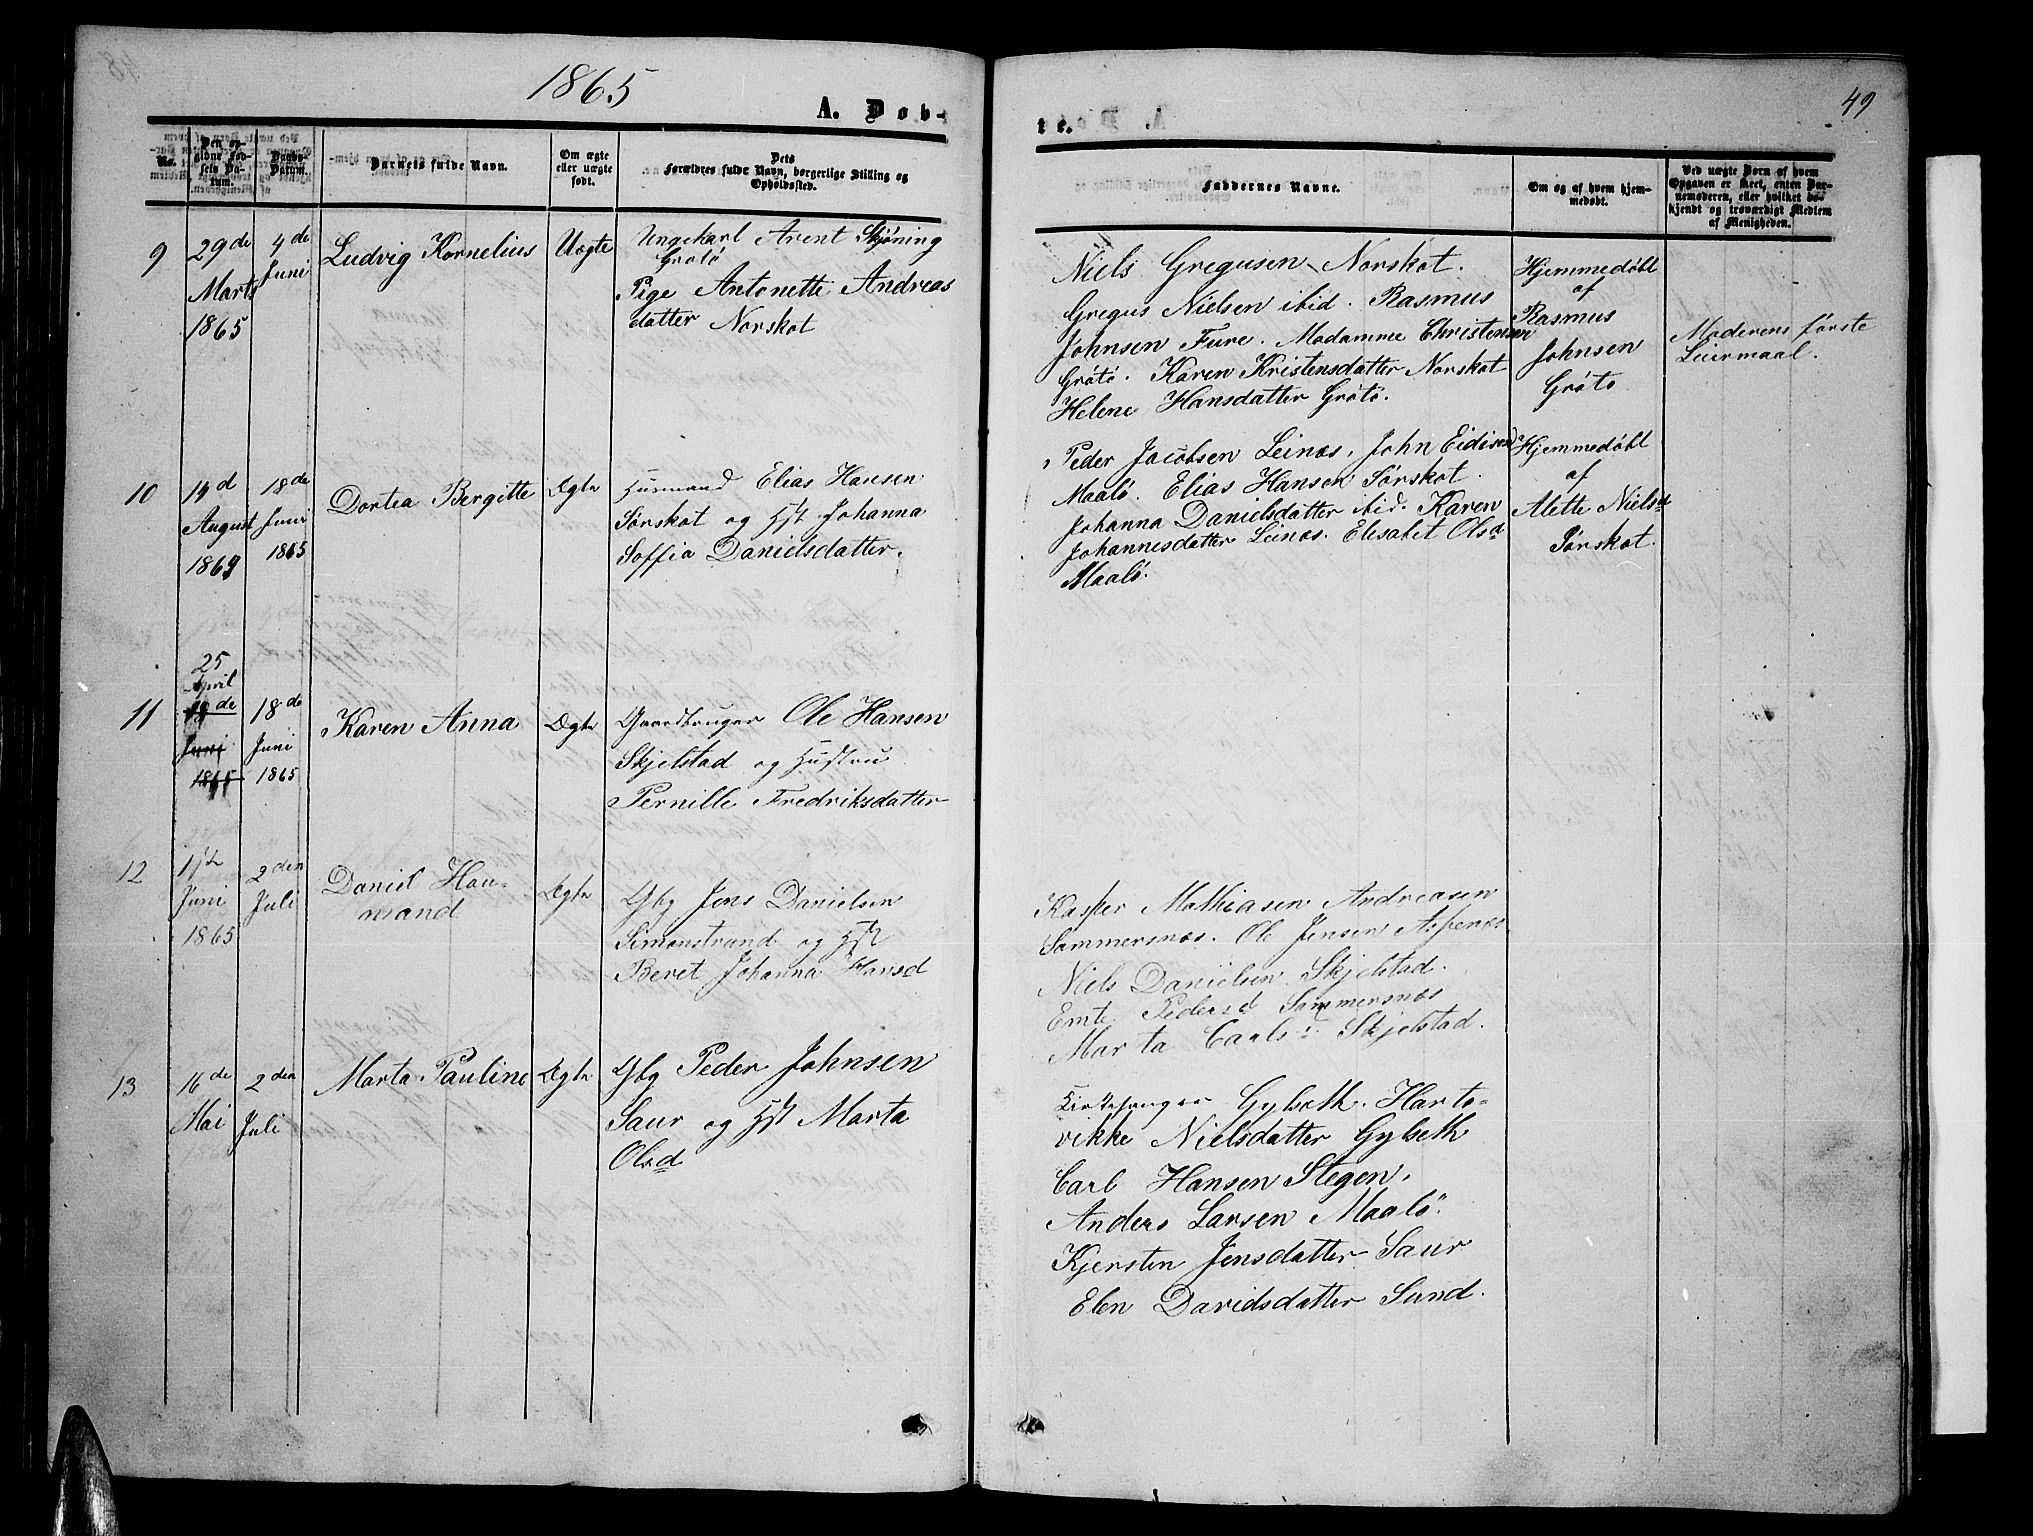 1865
A. Døb-
No.
Den opgivne Fødsels Datum.
Daabs-Datum.
Barnets fulde Navn.
Om ægte eller uægte født.
Dets Forældres fulde Navn, borgerlige Stilling og Opholdssted.
9
29de
Marts
1865
4de
Juni
Ludvig Kornelius
Uægte
Ungekarl Arent Skjöning
Grötö
Pige Antonette Andreas
datter Norskot
10
August
18de
Juni
1865
Dortea Bergitte
Ægte
Husmand Elias Hansen
Sörskot og Hst Johanna
Soffia Danielsdatter.
11
25
April
18de
Juni
1865
18de
Juni
1865
Karen Anna
Ægte
Gaardbruger Ole Hansen
Skjelstad og Hustru
Pernille Fredriksdatter
12
Juni
1865
2den
Juli
Daniel Hau-
mand
Ægte
Gbg Jens Danielsen
Simonstrand og Hst
Beret Johanna Hansd
13
16de
Mai
2den
Juli
Marta Pauline
Ægte
Gbg Peder Johnsen
Saur og Hst Marta
Olsd
49
te.
Faddernes Navne.
Om og af hvem hjemmedøbt.
Ved uægte Børn af hvem Opgaven er skeet, enten Barnemoderen, eller hvilket bekjendt og troværdigt Medlem af Menigheden.
Niels Gregusen Norskot.
Gregus Nielsen ibid. Rasmus
Johnsen Fure. Madamme Christensen
Grötö. Karen Kristensdatter Norskot
Helene Hansdatter Grötö.
Hjemmedöbt
af
Rasmus
Johnsen
Gröto
Moderens förste
Leiermaal.
Peder Jacobsen Leines. John Eidisen
Maalö. Elias Hansen Sörskot.
Johanna Danielsdatter ibid. Karen
Johannesdatter Leines. Elisabet Olsd
Maalö.
Hjemmedöbt
af
Alette Nielsd
Sörskot.
Kasper Mathiasen Andreasen
Sommersnes. Ole Jensen Aspenes.
Niels Danielsen Skjelstad.
Pedersd Sommersnes
Marta Carlsd Skjelstad.
Kirkesanger Gylseth. Harto-
vikke Nielsdatter Gylseth
Carl Hansen Stegen.
Anders Larsen Maalö.
Kjersten Jensdatter Saur
Elen Davidsdatter Sund.